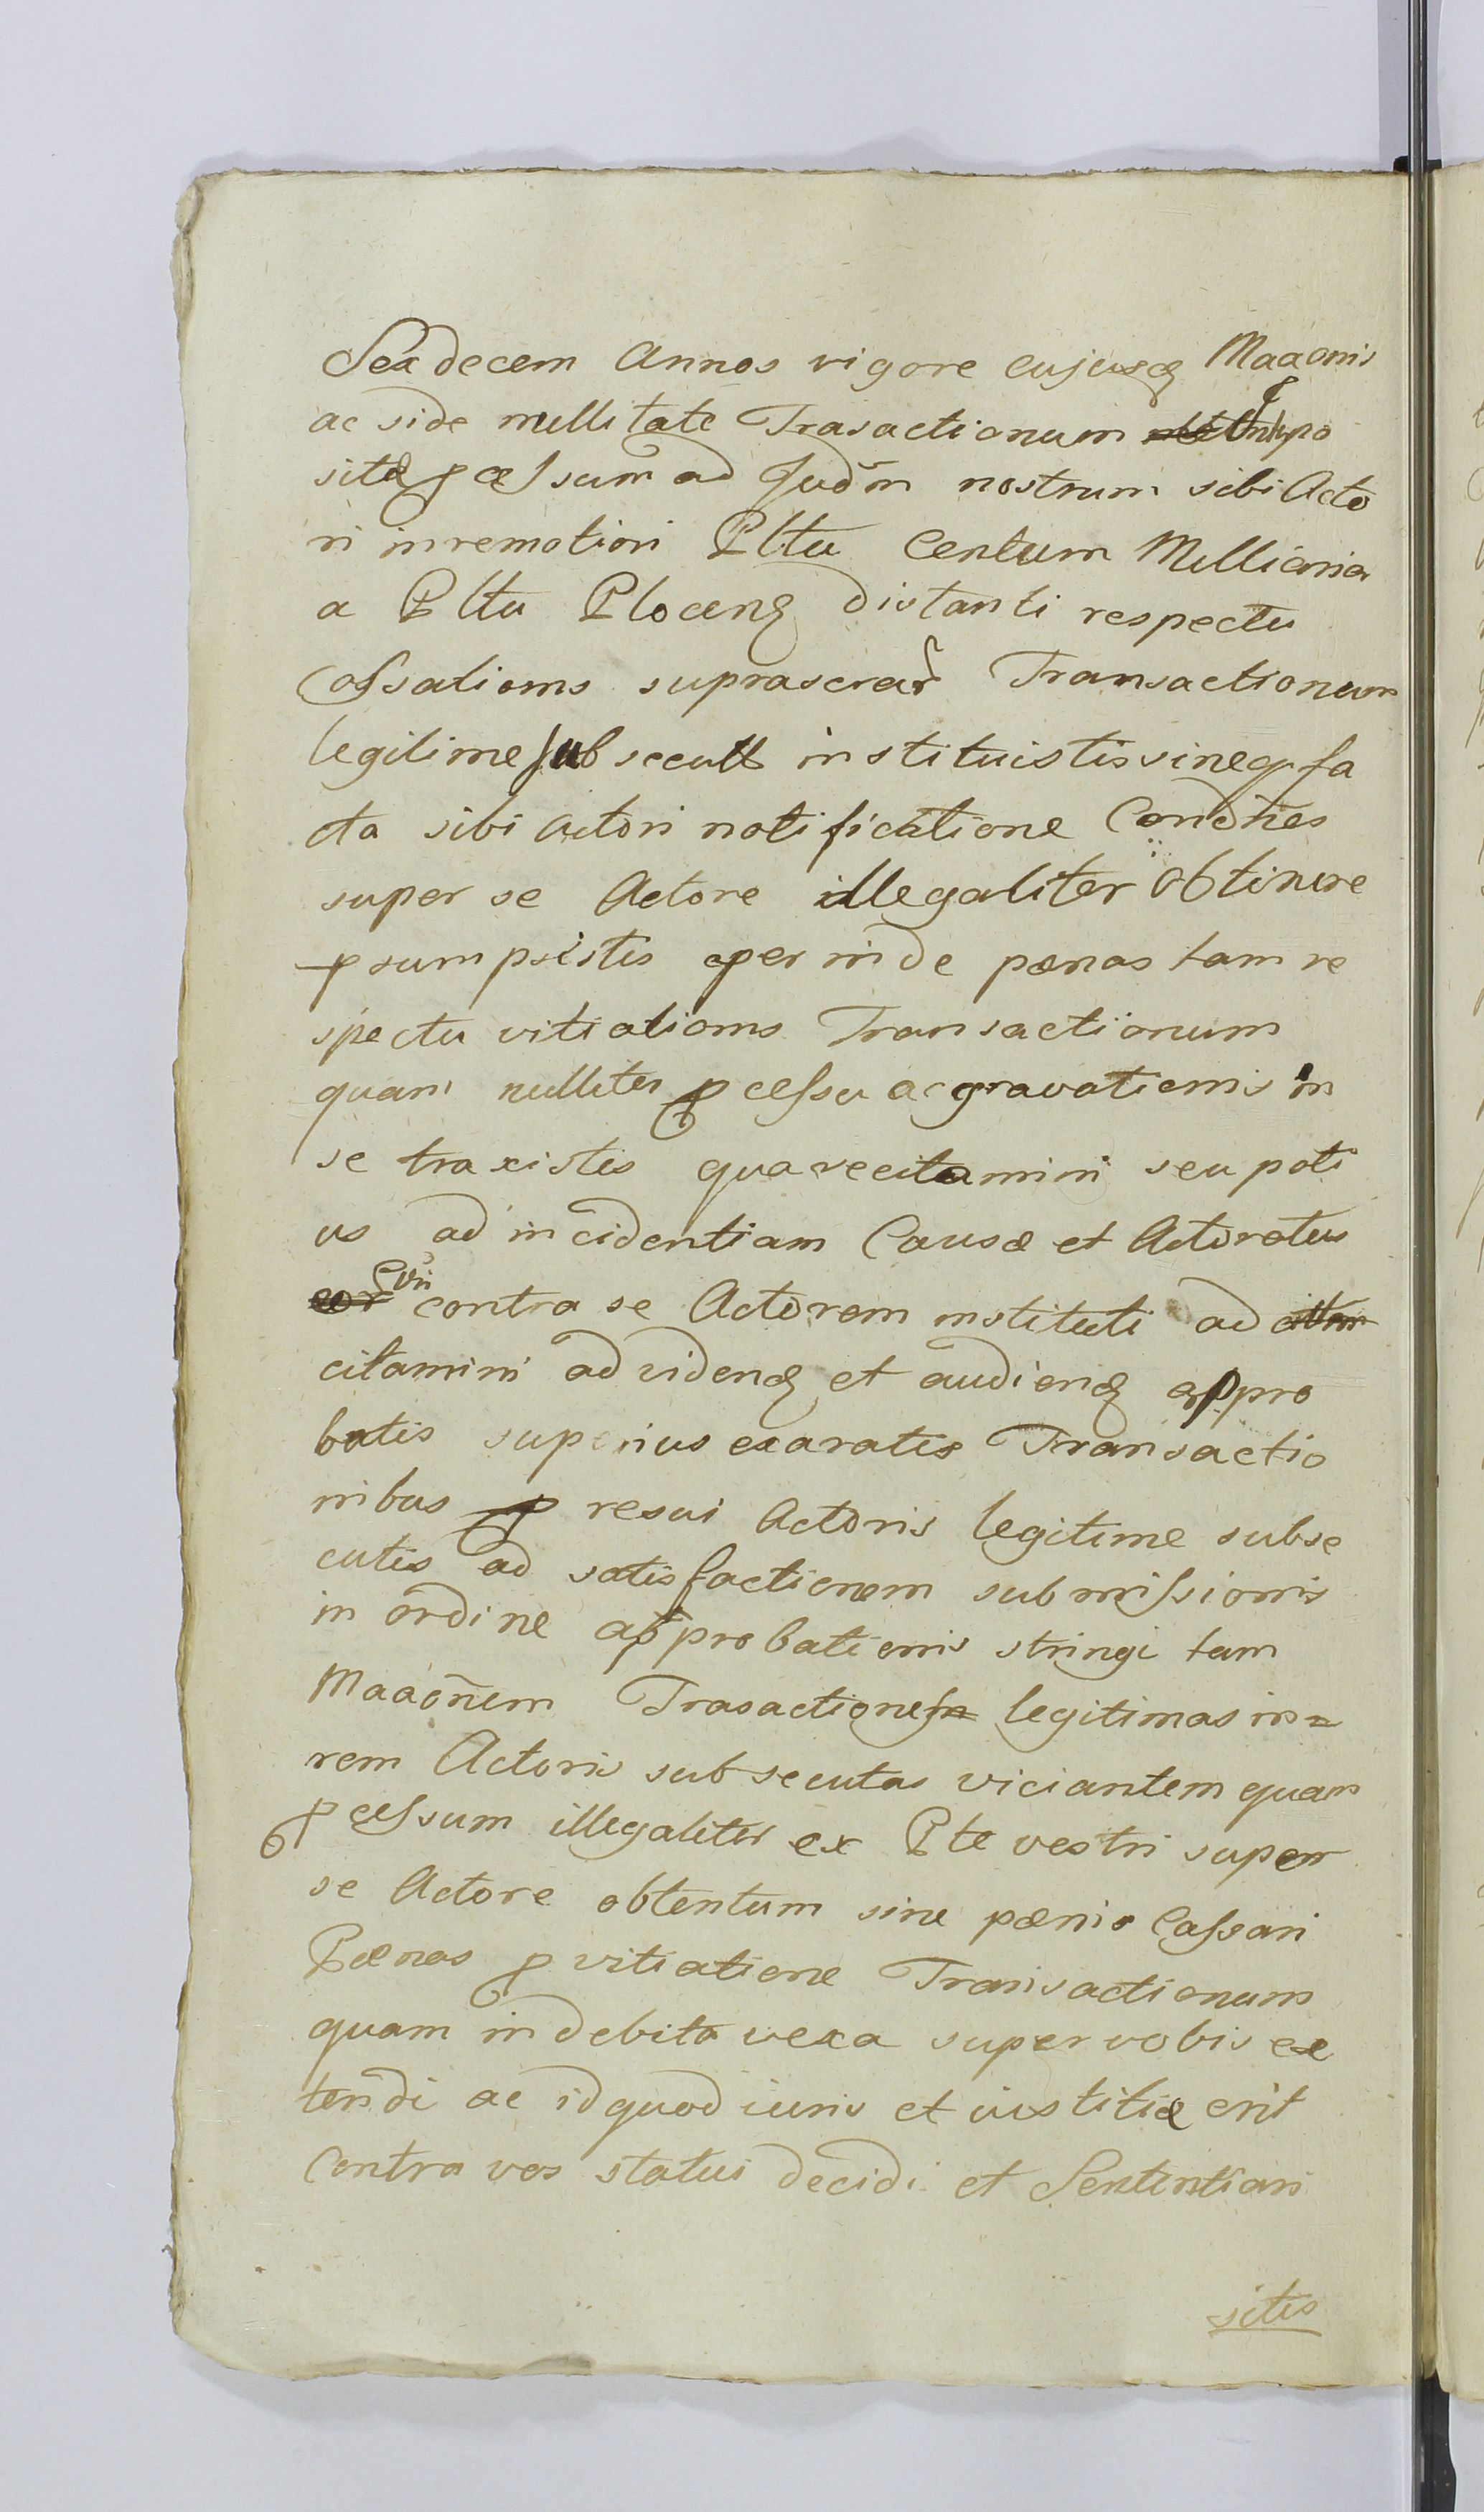 Sexdecem Annos vigore cujusq Maaonis
ac side nullitate Trasactionum po
sita pcessum ad Judm nostrum sibi Acto
ri in remotiori Pltu Centum Milliaria
a Pltu Plocens distanti respectu
Cassationis suprascrar Transactionum
legitime subsecutt instituistis sineq fa
cta sibi Actori notificatione Condnes
super se Actore illegaliter obtinere
psumpsistis perinde pœnas tam re
spectu vitiationis Transactionum
quam nulliter pcessu aggravationis in
se traxistis quare citamini seu poti
us ad incidentiam Causæ et Actoratus
contra se Actorem instituti ad
citamini ad vidend et audiend appro
batis superius exaratis Transactio
nibus p re sui Actoris legitime subse
cutis ad satisfactionem submissionis
in ordine approbationis stringi tam
Maaonem Trasactiones legitimas in=
rem Actoris subsecutas viciantem quam
pcessum illegaliter ex Pte vestri super
se Actore obtentum sine pœnis Cassari
Pœnas p vitiatione Transactionum
quam indebita vexa super vobis ex
tendi ac id quod iuris et iustitiæ erit
Contra vos statui decidi et Sententiari
sitis